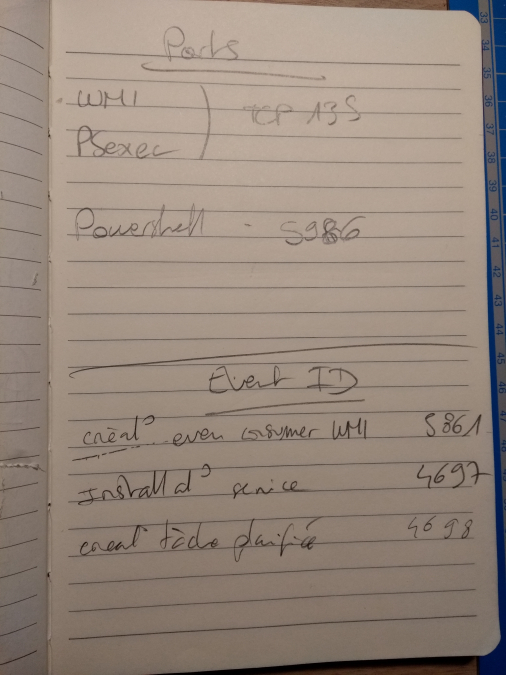 Ports
WMI
TCP 135
PSexec
Powershell - 5986
Event ID
créat° even consumer WMI 5861
Installat° service 4697
creat° tâche planifiée 4698
33
34
35
36
37
38
39
40
41
42
43
44
45
46
47
48
49
50
51